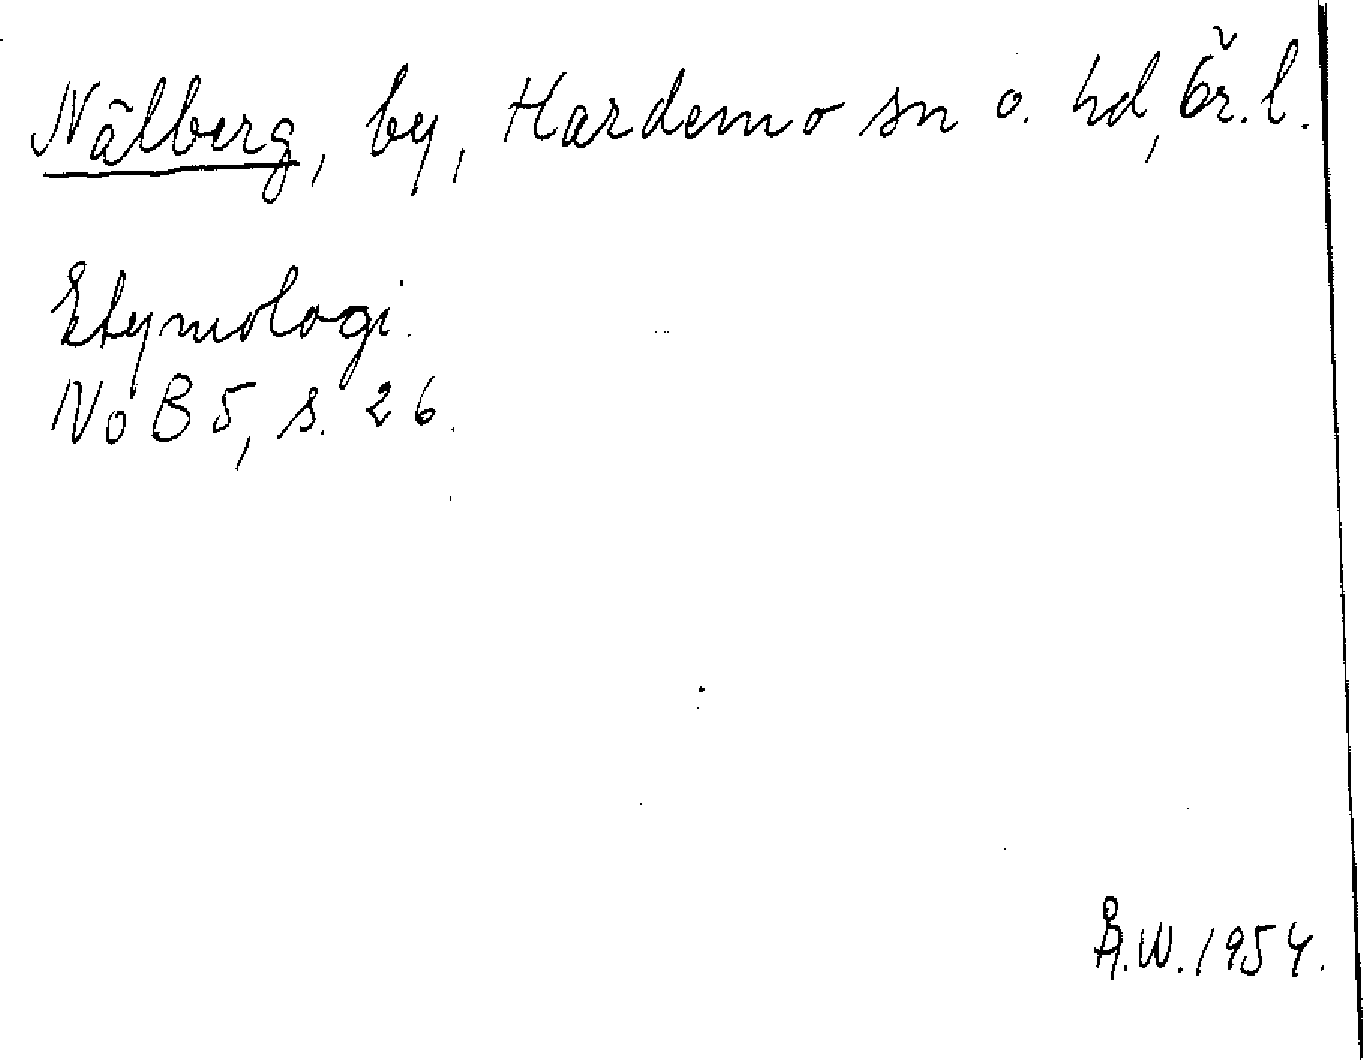 Nälberg, by, Hardemo sn o. hd, Ör. l.
Etymologi.
NoB 5, s. 26.
Å.W. 1954.